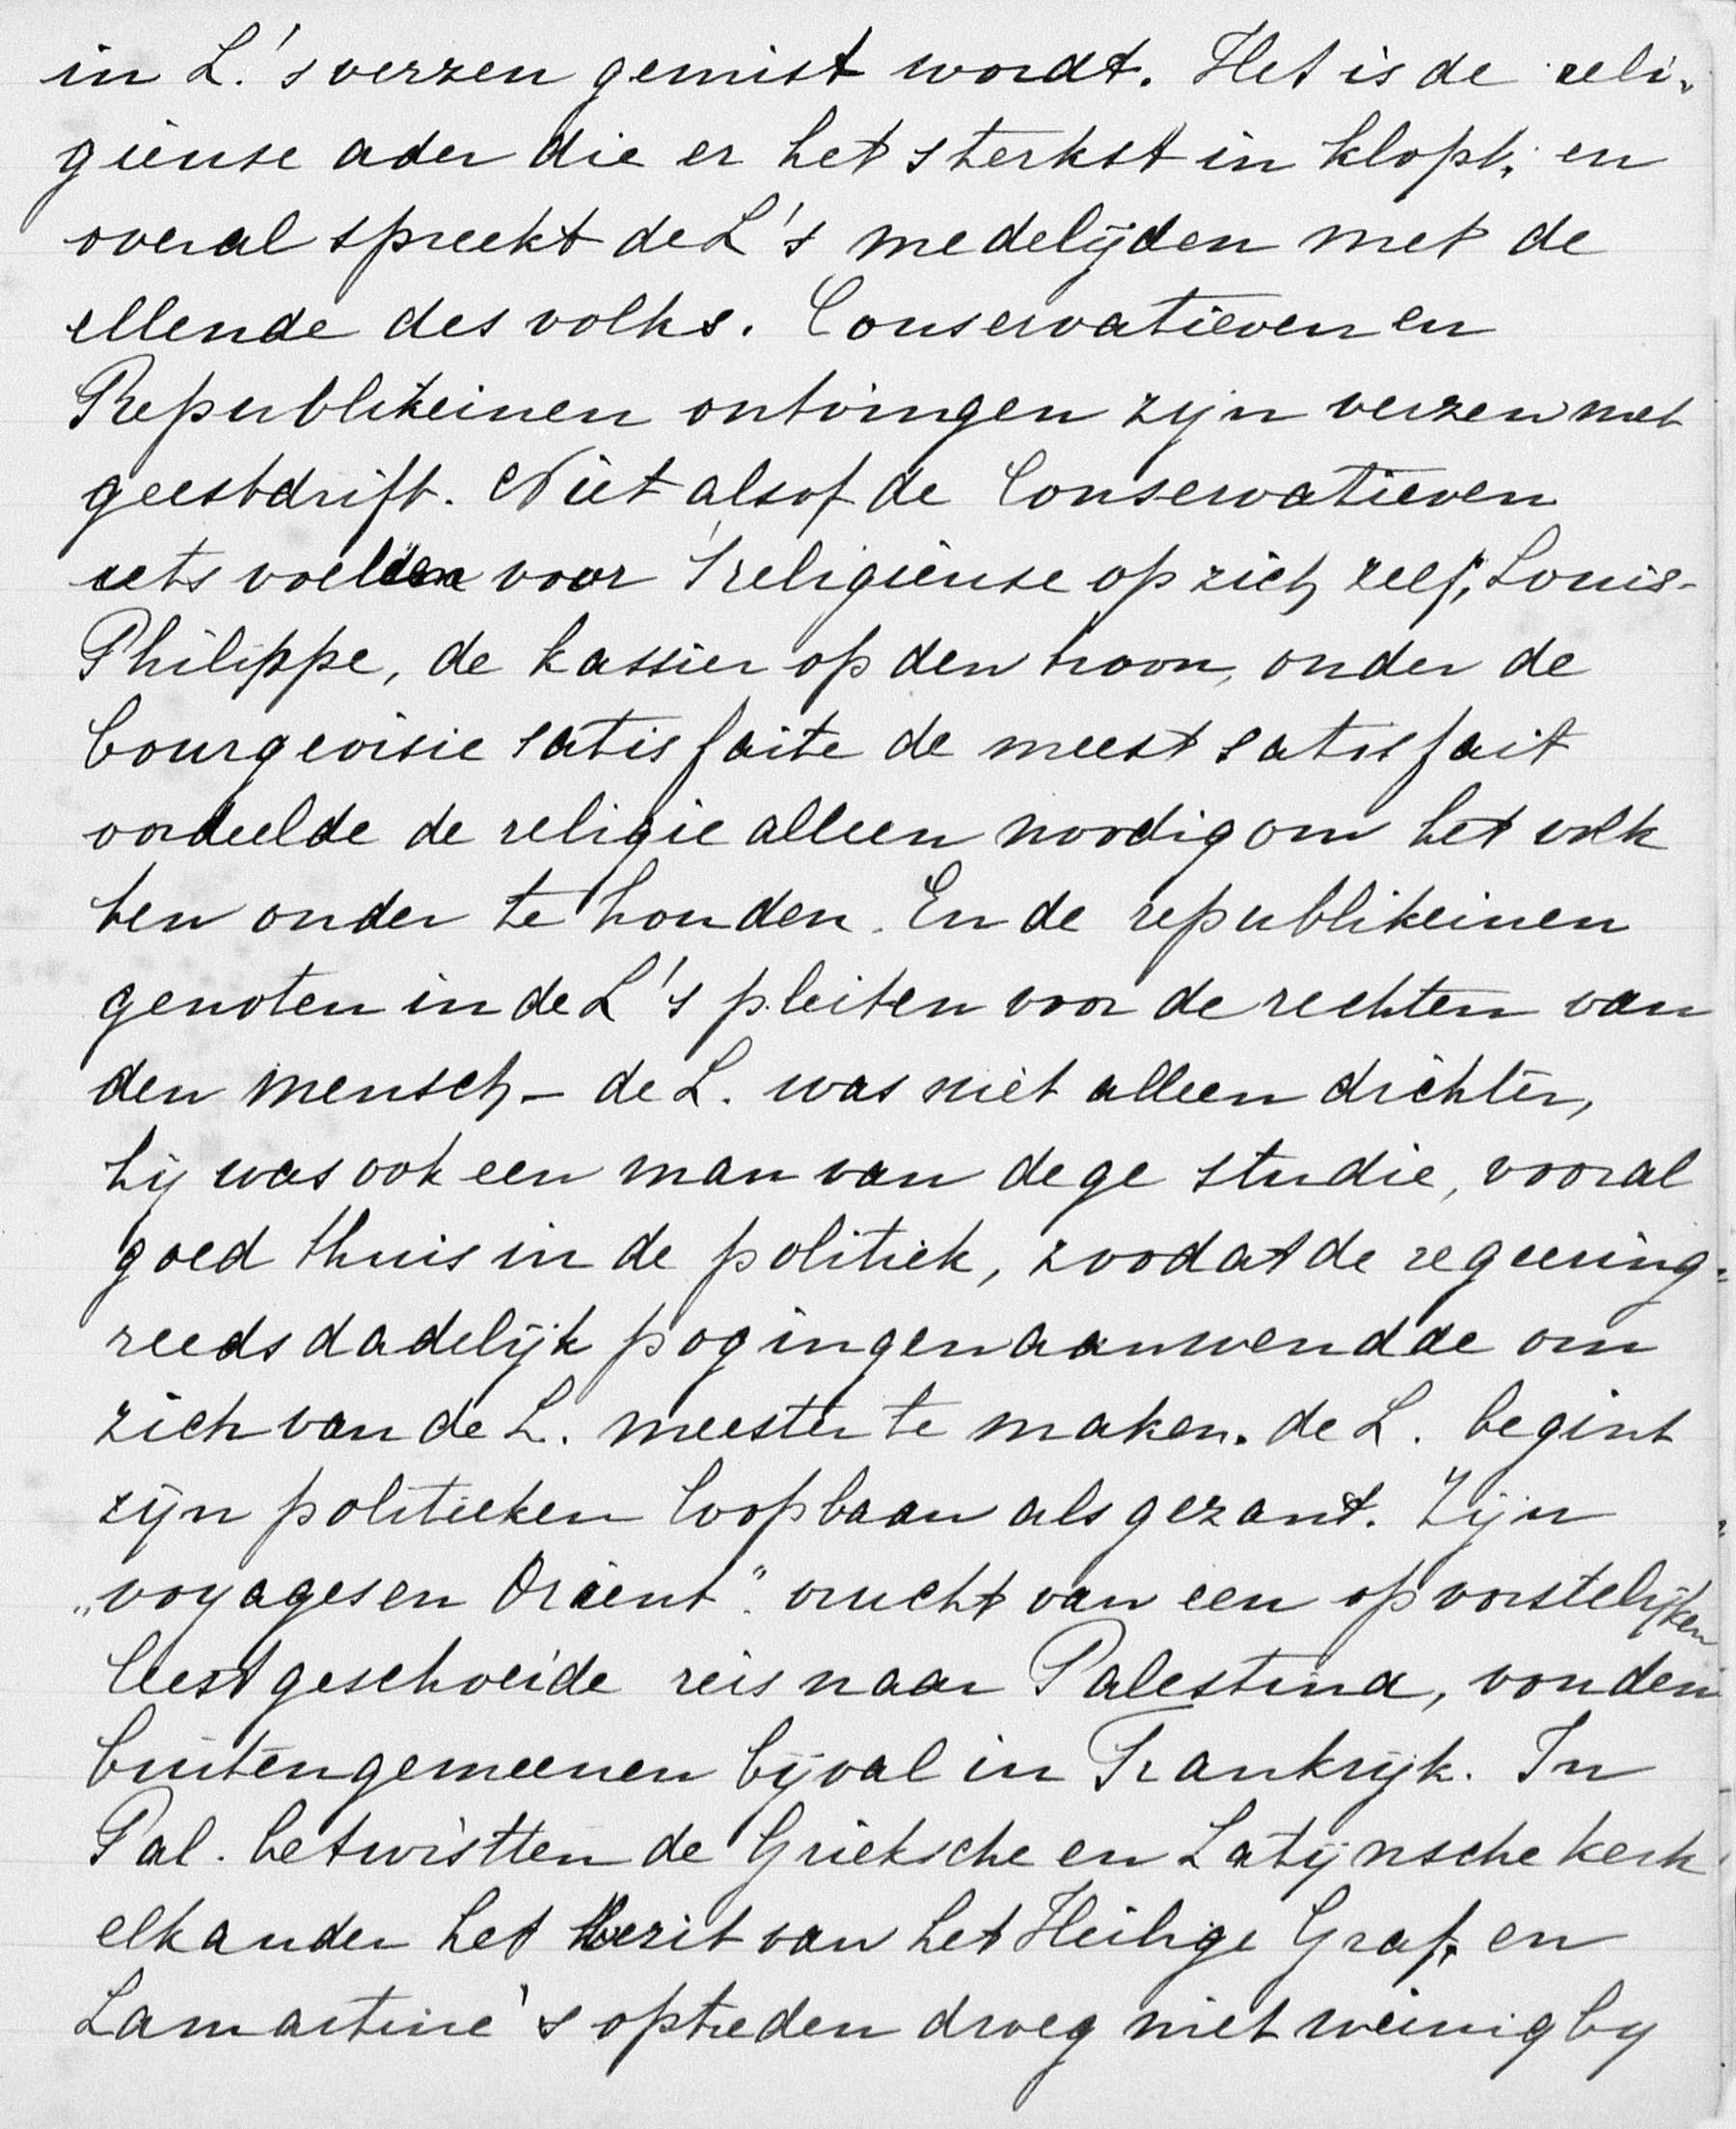 in L.'s verzen gemist wordt. Het is de reli-
gieuse ader die er het sterkst in klopt, en
overal spreekt de L's medelijden met de
ellende des volks. Conservatieven en
Republikeinen ontvingen zijn verzen met
geestdrift. Niet alsof de Conservatieven
iets voelden voor 't religieuse op zich zelf, Louis-
Philippe, de kassier op den troon, onder de
bourgeoisie satisfaite de meest satisfait
oordeelde de religie alleen noodig om het volk
ten onder te houden. En de republikeinen
genoten in de L's pleiten voor de rechten van
den mensch – de L. was niet alleen dichter,
hij was ook een man van dege studie, vooral
goed thuis in de politiek, zoodat de regeering
reeds dadelijk pogingen aanwendde om
zich van de L. meester te maken. de L. begint
zijn politieken loopbaan als gezant. Zijn
„voyages en Orient" vrucht van een op vorstelijken
leest geschoeide reis naar Palestina, vonden
buitengemeenen bijval in Frankrijk. In
Pal. betwistten de Grieksche en Latijnsche kerk
elkander het bezit van het Heilige Graf, en
Lamartine's optreden droeg niet weinig by